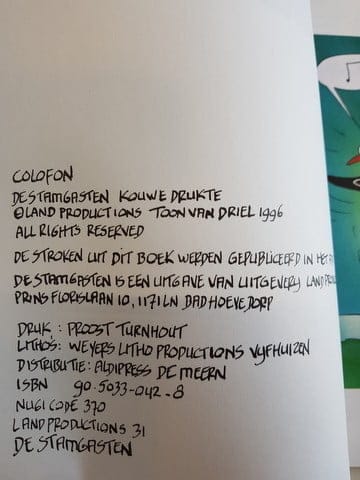 COLOFON
DE STAMGASTEN KOUWE DRUKTE
© LAND PRODUCTIONS TOON VAN DRIEL 1996
ALL RIGHTS RESERVED
DE STROKEN UIT DIT BOEK WERDEN GEPUBLICEERD IN HET
DE STAMGASTEN IS EEN UITGAVE VAN UITGEVERIJ LAND
PRINS FLORISLAAN 10, 1171 LN BADHOEVEDORP
DRUK : PROOST TURNHOUT
LITHOS: WEYERS LITHO PRODUCTIONS VIJFHUIZEN
DISTRIBUTIE: ALDIPRESS DE MEERN
ISBN 90.5033-042-8
NUGI CODE 370
LAND PRODUCTIONS 31
DE STAMGASTEN